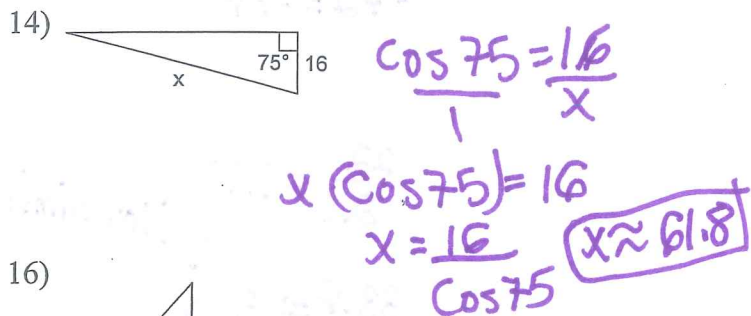 14)
75° 16
x
cos 75 = 16
1 x
x (cos 75) = 16
x = 16
cos 75
x ≈ 61.8
16)